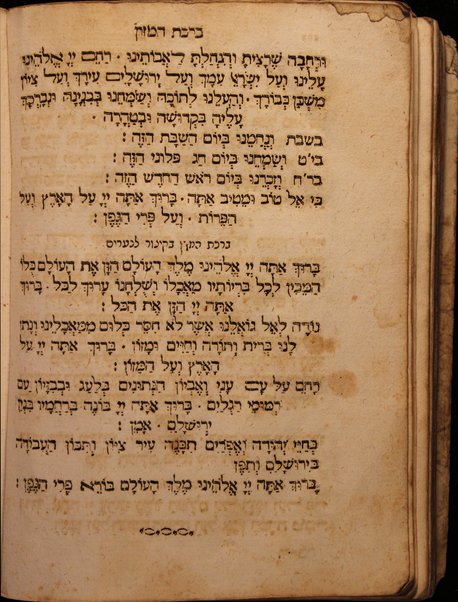 ברכת המזון
ורחבה שרצית והנחלת לאבותינו · רחם יי אלהינו
עלינו ועל ישראל עמך ועל ירושלים עירך ועל ציון
משכן כבודך · והעלנו לתוכה ושמחנו בבנינה ונברכך
עליה בקדושה ובטהרה ·
בשבת ונחמנו ביום השבת הזה :
בי״ט ושמחנו ביום חג פלוני הזה :
בר״ח וזכרנו ביום ראש החדש הזה :
כי אל טוב ומטיב אתה · ברוך אתה יי על הארץ ועל
הפרות · ועל פרי הגפן :
ברכת המזון בקיצור לנערים
ברוך אתה יי אלהינו מלך העולם הזן את העולם כלו
המכין לכל בריותיו מאכלו ושלחנו ערוך לכל · ברוך
אתה יי הזן את הכל :
נודה לאל גואלנו אשר לא חסר כלום ממאכלינו ונתן
לנו ברית ותורה וחיים ומזון · ברוך אתה יי על
הארץ ועל המזון :
רחם על עם עני ואביון הנתונים בלעג ובבזיון עם
רמוסי רגלים · ברוך אתה יי בונה ברחמיו בנין
ירושלים · אמן :
בחיי יהודה ואפרים תבנה עיר ציון ותכון העבודה
בירושלם
ברוך אתה יי אלהינו מלך העולם בורא פרי הגפן :